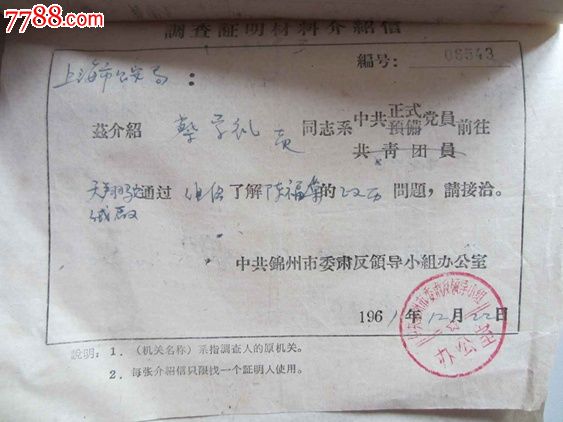 7788.com
調查証明材料介紹信
編号: 08543
上海市公安局:
茲介紹 同志系中共正式預備党員前往
共青团員
通过 了解 的 問題,請接洽。
中共錦州市委肃反領导小組办公室
1961年12月22日
办公室
說明:1.(机关名称)系指調查人的原机关。
2.每张介紹信只限找一个証明人使用。